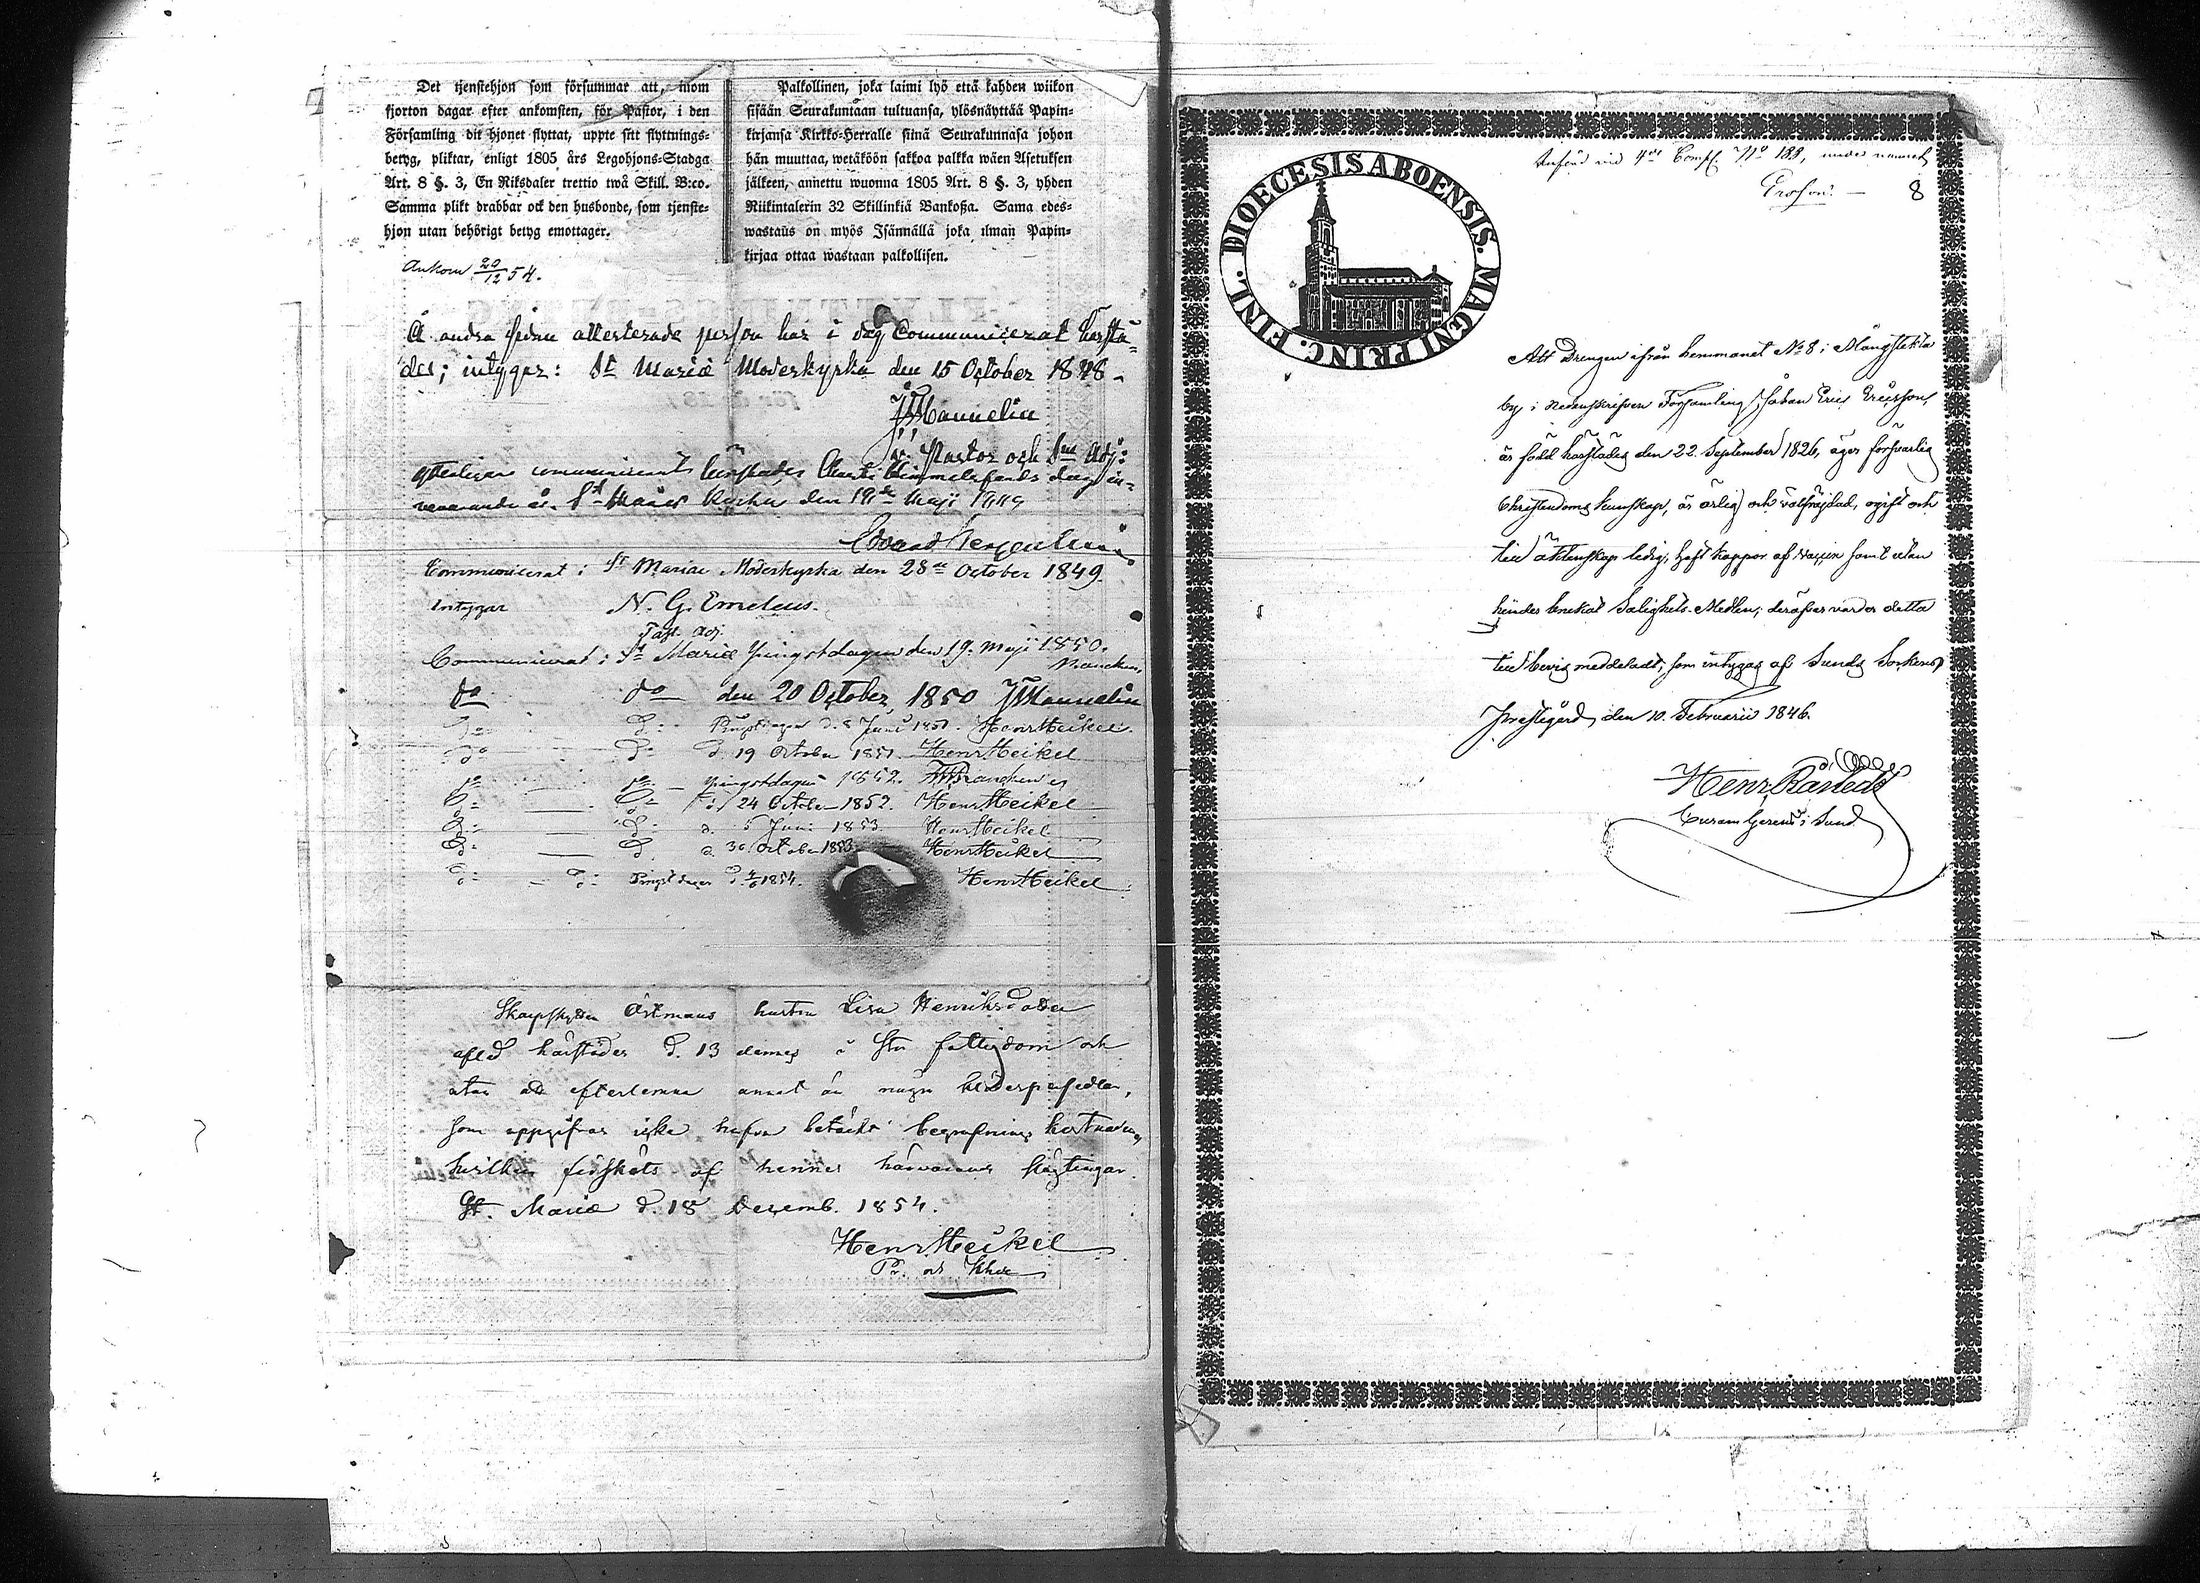 Det tjenstehjon som försummar att, inom
fjorton dagar efter ankomsten, för Pastor, i den
Församling dit hjonet flyttat, uppte sitt flyttnings-
betyg, pliktar, enligt 1805 års Legohjons-Stadga
Art. 8 §. 3, En Riksdaler trettio twå Skill. B:co.
Samma plikt drabbar ock den husbonde, som tjenste-
hjon utan behörigt betyg emottager.
Palkollinen, joka laimi lyö että kahden wiikon
sisään Seurakuntaan tultuansa, ylösnäyttää Papin-
kirjansa Kirkko-Herralle siinä Seurakunnasa johon
hän muuttaa, wetäköön sakkoa palkka wäen Asetuksen
jälkeen, annettu wuonna 1805 Art. 8 §. 3, yhden
Riikintalerin 32 Skillinkiä Bankoßa. Sama edes-
wastaus on myös Isännällä joka ilman Papin-
kirjaa ottaa wastaan palkollisen.
Ankom 20/12 54.
Å andra sidan attesterade person har i dag Communicerat härstä-
des; intygar: St Mariæ Moderkyrka den 15 October 1848.
JJMannelin
v. Pastor och Adj:
ytterligare communicerat härstädes Christi Himmelsfärds dag in-
nevarande år. St Mariæ Kyrka den 19de Maji 1849
Communicerat i St Mariæ Moderkyrka den 28de October 1849.
intygar N. G. Emeleus.
Past. adj.
Communicerat i St Mariæ Pingstdagen den 19. Maji 1850.
do do den 20 October, 1850 JJMannelin
do D:o Pingstdagen d. 8 Juni 1851. HenrHeikel
do D:o d. 19 October 1851. HenrHeikel
do do Pingstdagen 1852.
D:o D:o d. 24 October 1852. HenrHeikel
D:o D:o d. 5 Juni 1853. HenrHeikel
D:o D:o d. 30 October 1853. HenrHeikel
D:o D:o Pingstdagen d. 4/6 1854. HenrHeikel
Skarpskytten Östmans hustru Lisa Henriksdotter
afled härstädes d. 13 dennes i stor fattigdom och
utan att efterlemna annat än några klädespersedlar,
som uppgifvas icke hafva betäckt begrafnings kostnaden,
hvilken af hennes härvarande slägtingar.
St. Mariæ d. 18 Decemb. 1854.
HenrHeikel
Pr. och Khde
DIOECESIS ABOENSIS. MAGNI PRINC. FINL.
Införd vid 4de Comp. No 188, under namnet
8
Att Drengen ifrån hemmanet No 8 i Mångstekta
by i Nedanskrifven Församling, Johan Eric Ericsson,
är född härstädes den 22. September 1826, äger försvarlig
Christendoms kunskap, är ärlig och välfrejdad, ogift och
till äktenskap ledig, haft koppor af vaccin samt utan
hinder brukat Salighets-Medlen; deröfver varder detta
till bevis meddeladt, som intygas af Sunds Sockens
Prestegård, den 10. Februarii 1846.
Henr Råstedt
Curam Gerens i Sund.